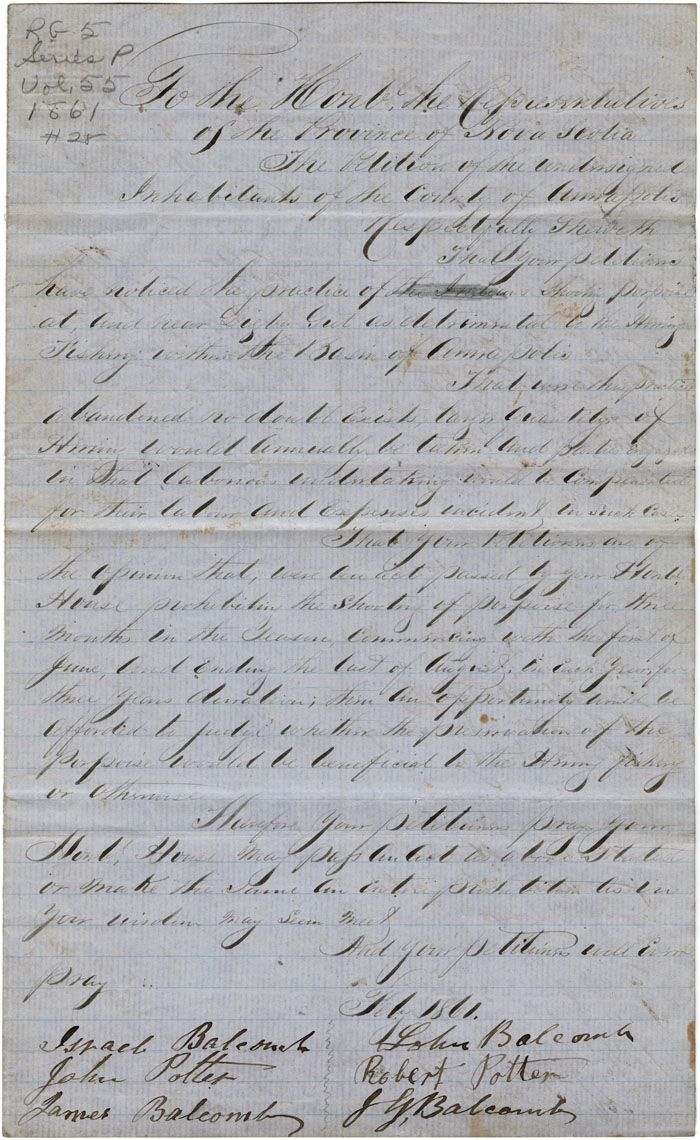 RG 5
Series P
Vol. 55
1861
# 28
To the Honbl, the Representatives
of the Province of Nova Scotia
The Petition of the undersigned
Inhabitants of the County of Annapolis
Respectfully Sheweth
That your petitioners
have noticed the practice of shooting porpoise
at, and near Digby Gut as detrimental to the Herring
Fishing within the Basin of Annapolis
That were the practice
abandoned no doubt exists, large quantitys of
Herring would annually be taken and parties engaged
in that laborious undertaking would be compensated
for their labour and expenses incident in such case
That your Petitioners are of
the opinion that, were an act passed by your Honbl
House prohibiting the shooting of porpoise for three
Months in the Season, commencing with the first of
June, and ending the last of August, in each year for
three years duration; then an opportunity would be
afforded to judge whether the preservation of the
Porpoise would be beneficial to the Herring fishery
or otherwise
Therefore your petitioners pray your
Honbl House may pass an act as above stated
or make the same an as in
your wisdom may seem meet
And your petitioners will ever
pray
Feby 1861.
Israel Balcomb
John Balcomb
John Potter
Robert Potter
James Balcomb
J G, Balcomb